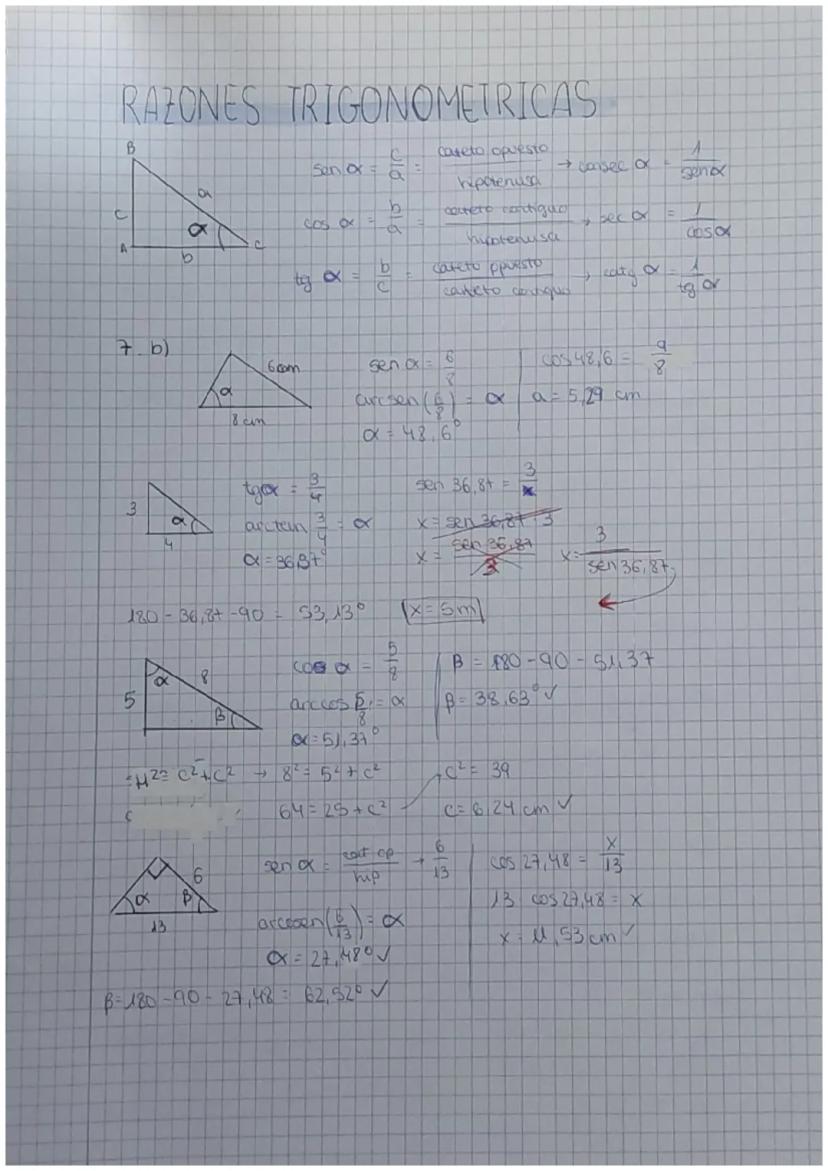 RAZONES TRIGONOMETRICAS
B
a
c
α
A
b
C
sen α = c/a = cateto opuesto/hipotenusa → consec α = 1/sen α
cos α = b/a = cateto contiguo/hipotenusa, sec α = 1/cos α
tg α = b/c = cateto opuesto/cateto contiguo, cotg α = 1/tg α
7. b)
6cm
α
8 cm
sen α = 6/8
arcsen (6/8) = α
α = 48,6°
cos 48,6 = a/8
a = 5,29 cm
3
α
4
tg α = 3/4
arctan 3/4 = α
α = 36,87°
sen 36,87 = 3/x
x = sen 36,87 · 3
x = sen 36,87/3
x = 3/sen 36,87
180 - 36,87 - 90 = 53,13°
x = 5m
α
8
5
β
cos α = 5/8
arccos 5/8 = α
α = 51,37°
β = 180 - 90 - 51,37
β = 38,63° ✓
H² = c² + c² → 8² = 5² + c²
64 = 25 + c²
c² = 39
c = 6,24 cm ✓
6
α
β
13
sen α = cat op/hip → 6/13
arcosen (6/13) = α
α = 27,48° ✓
cos 27,48 = x/13
13 · cos 27,48 = x
x = 11,53 cm ✓
β = 180 - 90 - 27,48 = 62,52° ✓